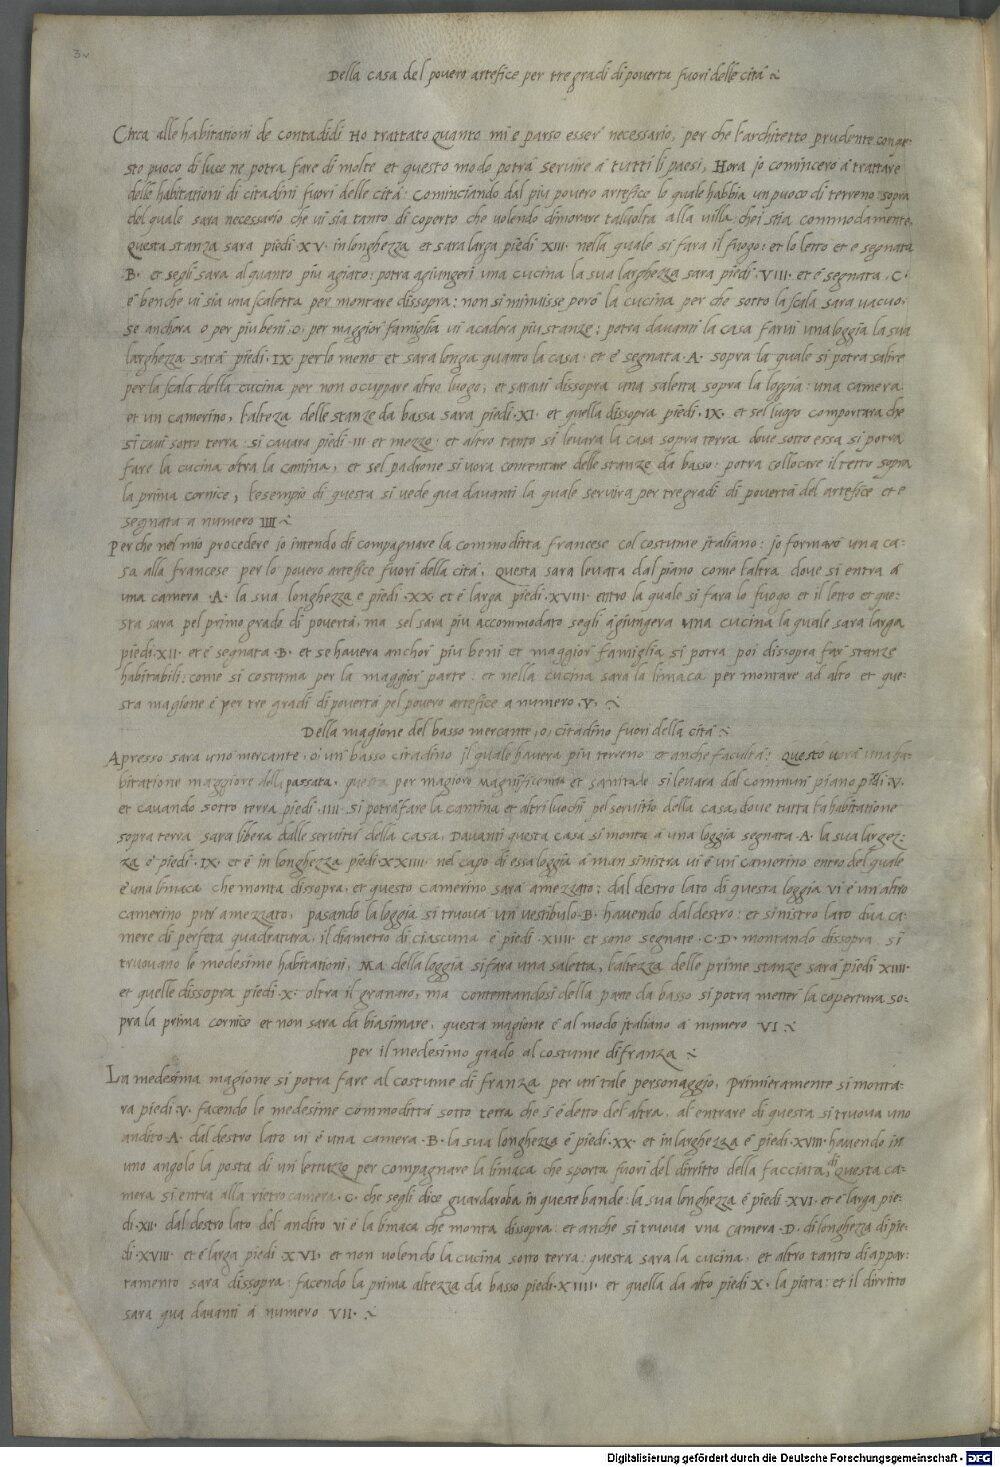 3v
Della casa del povero artefice per tre gradi di poverta fuori delle citá
Circa alle habitationi de contadidi Ho trattato quanto mi e parso esser necessario, per che l'architetto prudente con que-
sto puoco di luce ne potra fare di molte et questo modo potrá servire á tutti li paesi, Hora jo comincero á trattare
delle habitationi di citadini fuori delle citá. Cominciando dal piu povero artefice lo quale habbia un puoco di terreno: sopra
del quale sara necessario che vi sia tanto di coperto che volendo dimorare talvolta alla villa ch'ei stia commodamente,
questa stanza sara piedi XV. in longhezza et sara larga piedi XIII. nella quale si fara il fuogo: et lo letto et e segnata
B. et s'egli sara al quanto piu agiato: potra agiungeri una cucina la sua larghezza sara piedi VIII. et é segnata. C.
é benche vi sia una scaletta per montare dissopra: non si minuisse peró la cucina per che sotto la scala sara vacuo.
Se anchora o per piu beni, o, per maggior famiglia vi acadera piu stanze; potra davanti la casa farvi una loggia la sua
larghezza sará piedi. IX. per lo meno et sara longa quanto la casa. et é segnata A. sopra la quale si potra salire
per la scala della cucina per non occuppare altro luogo, et saravi dissopra una saletta sopra la loggia: una camera
et un camerino, l'alteza delle stanze da basso sara piedi. XI. et quella dissopra piedi, IX. et se'l luogo comportara che
si cavi sotto terra: si cavara piedi. III et mezzo: et altro tanto si levara la casa sopra terra dove sotto essa si potra
fare la cucina oltra la cantina, et se'l padrone si vora contentare delle stanze da basso: potra collocare il tetto sopra
la prima cornice, l'esempio di questa si vede qua davanti la quale servira per tre gradi di povertá del artefice et e
segnata a numero IIII
Perche nel mio procedere jo intendo di compagnare la commoditta francese col costume jtaliano: jo formaró una ca-
sa alla francese per lo povero artefice fuori della citá, questa sara levata dal piano come l'altra dove si entra á
una camera A. la sua longhezza e piedi. XX. et é larga piedi. XVIII. entro la quale si fara lo fuogo et il letto et que-
sta sara pel primo grado di povertá, ma se'l sara piu accommodato s'egli agiungera una cucina la quale sara larga
piedi. XII. et é segnata B. et se havera anchor piu beni et maggior famiglia si potra poi dissopra far stanze
habitabili: come si costuma per la maggior parte: et nella cucina sara la limaca per montare ad alto et que-
sta magione é per tre gradi di povertá pel povero artefice a numero. V.
Della magione del basso mercante, o, citadino fuori della citá
Apresso sara uno mercante, o, un basso citadino il quale havera piu terreno et anche facultá: questo vorá una ha-
bitatione maggiore della passata, questa per magiore magnificentia et sanitade si levara dal commun piano piedi. V.
et cavando sotto terra piedi. IIII. si potra fare la cantina et altri luochi pel servitio della casa, dove tutta l'habitatione
sopra terra sara libera dalle servitú della casa, Davanti questa casa si monta a una loggia segnata. A. la sua largez-
za é piedi. IX. et é in longhezza piedi. XXIIII. nel capo di essa loggia á man sinistra vi é un camerino entro del quale
é una limaca che monta dissopra, et questo camerino sara amezzato; dal destro lato di questa loggia vi é un altro
camerino pur amezzato, pasando la loggia si truova un vestibulo. B. havendo dal destro: et sinistro lato dua ca-
mere di perfeta quadratura, il diametro di ciascuna é piedi. XIIII. et sono segnate. C. D. montando dissopra si
truovano le medesime habitationi, Ma della loggia si fará una saletta, l'altezza delle prime stanze sará piedi XIIII.
et quelle dissopra piedi. X. oltra il granaro, ma contentandosi della parte da basso si potra metter la copertura so-
pra la prima cornice et non sara da biasimare, questa magione é al modo jtaliano á numero VI
per il medesimo grado al costume di franza
La medesima magione si potra fare al costume di franza per un tale personaggio, Primieramente si monta-
ra piedi. V. facendo le medesime commoditta sotto terra che s'é detto del'altra, al entrare di questa si truova uno
andito A. dal destro lato vi é una camera. B. la sua longhezza é piedi. XX. et in larghezza é piedi. XVIII. havendo in
uno angolo la posta di un lettuzzo per compagnare la limaca che sporta fuori del diritto della facciata, di questa ca-
mera si entra alla rietrocamera. C. che s'egli dice guardaroba in queste bande: la sua longhezza é piedi. XVI. et é larga pie-
di. XII. dal destro lato del andito vi é la limaca che monta dissopra: et anche si truova una camera. D. di longhezza di pie-
di. XVIII. et é larga piedi XVI. et non volendo la cucina sotto terra: questa sara la cucina. et altro tanto di appar-
tamento sara dissopra: facendo la prima altezza da basso piedi. XIIII. et quella da alto piedi X. la piata: et il diritto
sara qua davanti á numero VII.
Digitalisierung gefördert durch die Deutsche Forschungsgemeinschaft - DFG